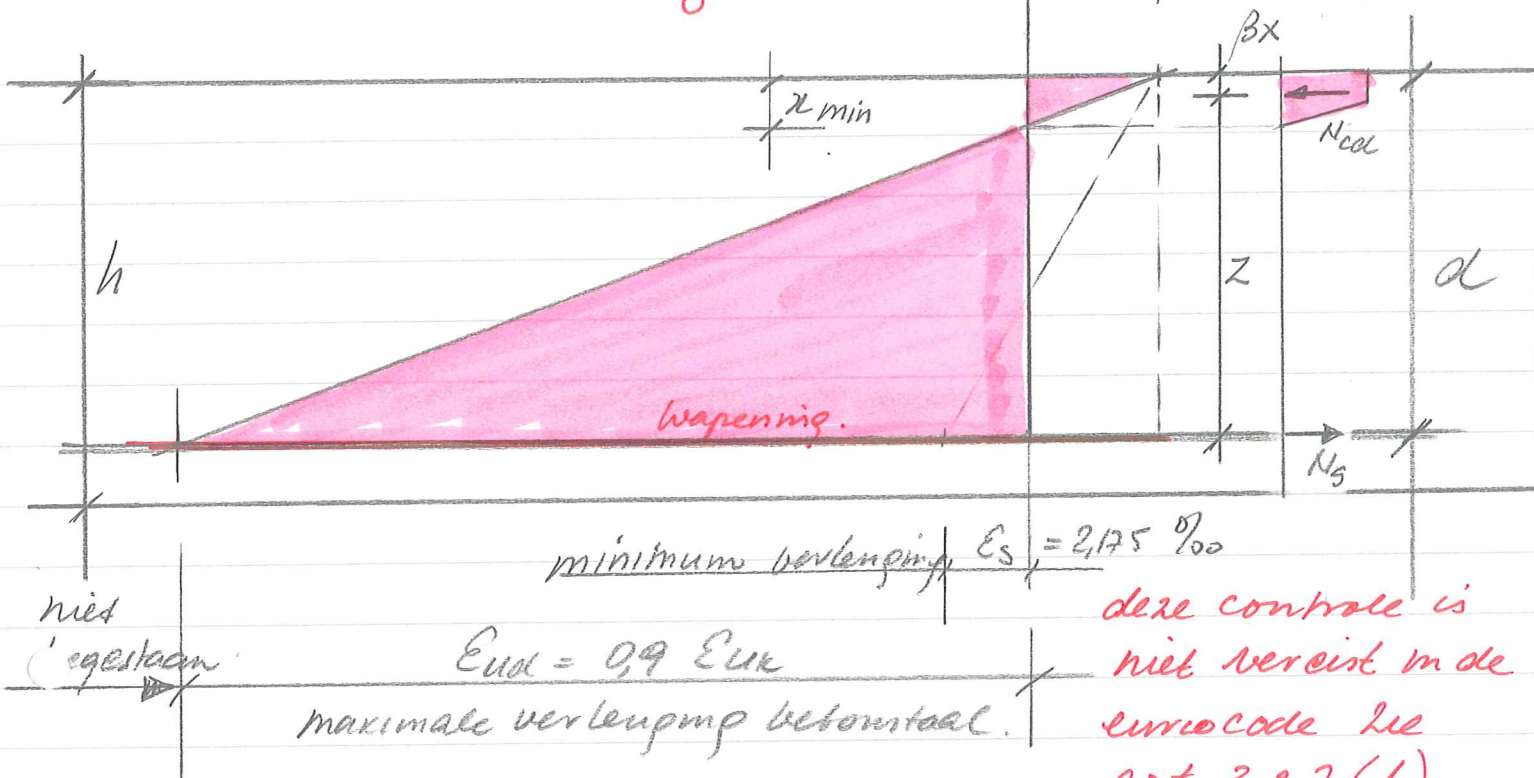 βx
x min
Ncd
h
z
d
wapening.
Ns
minimum verlenging εs = 2,175 ‰
niet
egestaan
εud = 0,9 εuk
maximale verlenging betonstaal.
deze controle is
niet vereist in de
eurocode zie